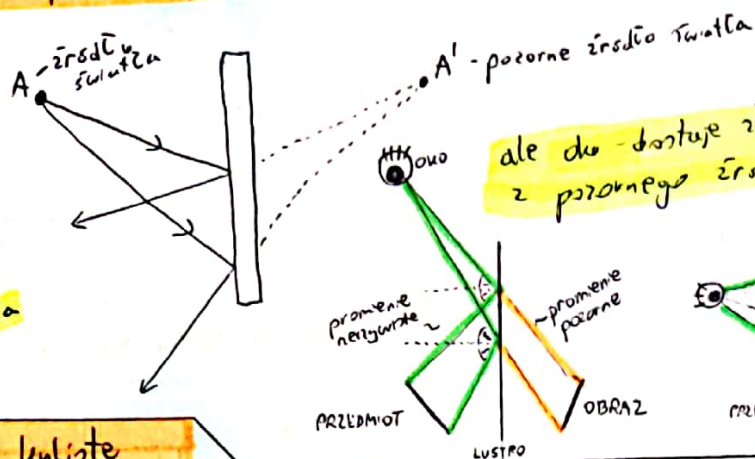 A - źródło
światła
A' - pozorne źródło światła
OKO
ale oko dostaje
z pozornego
promienie
rzeczywiste
promienie
pozorne
PRZEDMIOT
OBRAZ
LUSTRO
kuliste